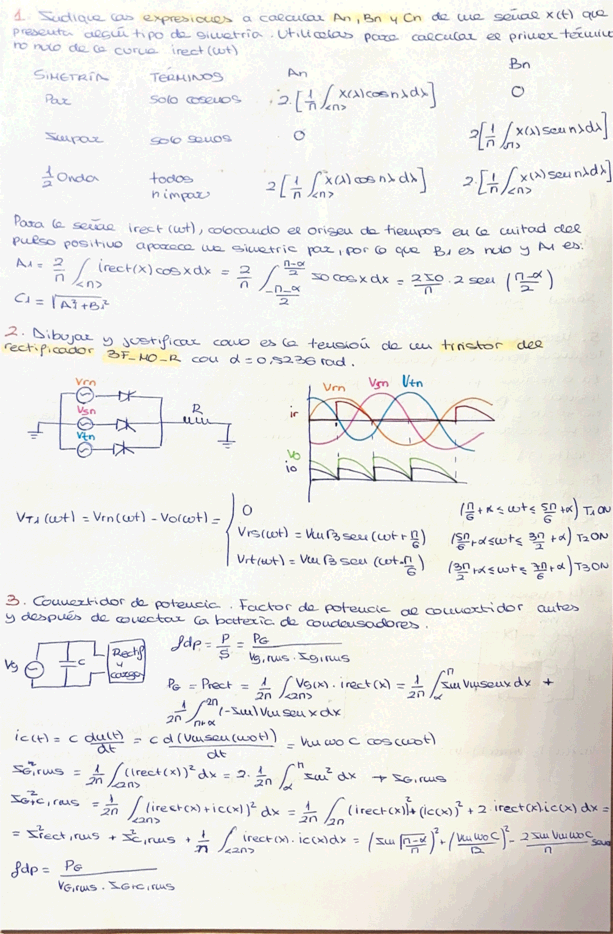 1. Indique las expresiones a calcular An, Bn y Cn de una señal x(t) que
presenta algún tipo de simetría. Utilícelas para calcular el primer término
no nulo de la curva irect(wt)
SIMETRÍA TÉRMINOS An Bn
Par solo cosenos 2·[1/π ∫<π> x(λ)cos nλ dλ] 0
Impar solo senos 0 2[1/π ∫<π> x(λ)sen nλ dλ]
1/2 Onda todos n impar 2[1/π ∫<π> x(λ)cos nλ dλ] 2·[1/π ∫<π> x(λ)sen nλ dλ]
Para la señal irect(wt), colocando el origen de tiempos en la mitad del
pulso positivo aparece una simetría par, por lo que B1 es nulo y A1 es:
A1 = 2/π ∫<π> irect(x) cos x dx = 2/π ∫ 50 cos x dx = 2·50/π · 2 sen (π-α/2)
C1 = √A1²+B1²
2. Dibujar y justificar como es la tensión de un tiristor del
rectificador 3F-MO-R con α = 0,5236 rad.
Vrn
Vsn
Vtn
R
Vrn Vsn Vtn
ir
Vo
io
VT1(wt) = Vrn(wt) - Vo(wt) =
0 (π/6+α ≤ wt ≤ 5π/6+α) T1 ON
Vrs(wt) = Vm√3 sen (wt + π/6) (5π/6+α ≤ wt ≤ 3π/2+α) T2 ON
Vrt(wt) = Vm√3 sen (wt - π/6) (3π/2+α ≤ wt ≤ 7π/6+α) T3 ON
3. Convertidor de potencia. Factor de potencia del convertidor antes
y después de conectar la batería de condensadores.
Vg
C
Rectif y carga
fdp = P/S = PG/(VG,rms · IG,rms)
PG = Prect = 1/2π ∫<2π> Vg(x)·irect(x) = 1/2π ∫α^π Im Vm sen x dx +
1/2π ∫π+α^2π (-Im) Vm sen x dx
ic(t) = C du(t)/dt = C d(Vm sen(wot))/dt = Vm wo C cos(wot)
I²G,rms = 1/2π ∫<2π> (irect(x))² dx = 2·1/2π ∫α^π Im² dx → IG,rms
I²G+C,rms = 1/2π ∫<2π> (irect(x)+ic(x))² dx = 1/2π ∫2π (irect(x))²+(ic(x))²+2·irect(x)·ic(x) dx =
= I²rect,rms + I²C,rms + 1/π ∫<2π> irect(x)·ic(x) dx = (Im √π-α/π)² + (Vm wo C/√2)² - 2 Im Vm wo C/π senα
fdp = PG/(VG,rms · IG+C,rms)